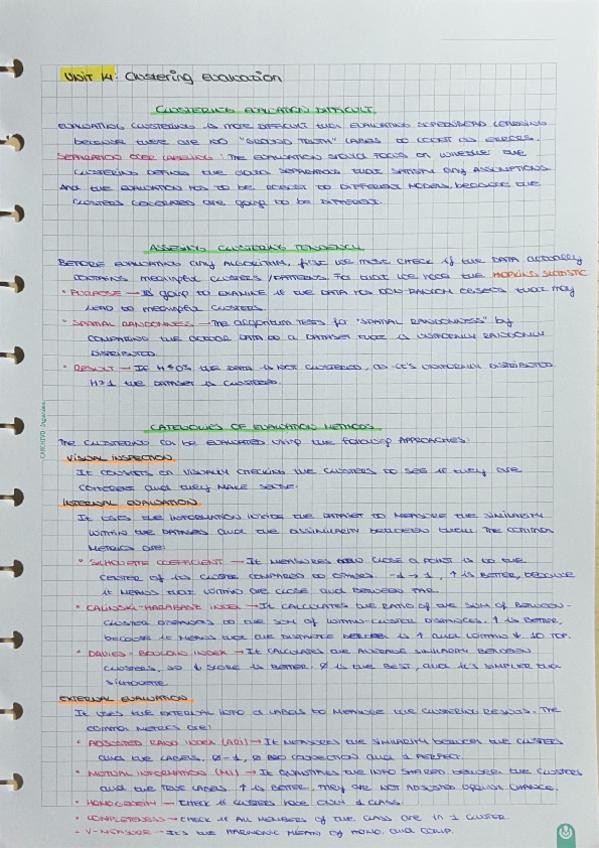 UNIT 14: Clustering evaluation
CLUSTERING EVALUATION DIFFICULT
EVALUATING CLUSTERING IS MORE DIFFICULT THAN EVALUATING SUPERVISED LEARNING
BECAUSE THERE ARE NO "GROUND TRUTH" LABELS TO
SEPARATION OVER LABELING: THE EVALUATION SHOULD FOCUS ON WHETHER THE
CLUSTERING DEFINES THE GOOD SEPARATION THAT SATISFY ANY ASSUMPTIONS.
AND THE EVALUATION HAS TO BE ROBUST TO DIFFERENT MODELS, BECAUSE THE
CLUSTERS GENERATED ARE going TO BE DIFFERENT.
ASSESSING CLUSTERING TENDENCY
BEFORE EVALUATING any ALGORITHM, first WE MUST CHECK if THE DATA actually
CONTAINS meaningful CLUSTERS/PATTERNS. FOR THAT WE HAVE THE HOPKINS STATISTIC
• PURPOSE → IS going TO EXAMINE IF THE DATA HAS NON-RANDOM OBJECTS THAT may
LEAD TO meaningful CLUSTERS.
• SPATIAL RANDOMNESS → The algorithm TESTS for "SPATIAL RANDOMNESS" by
COMPARING THE DATA TO A DATASET THAT IS UNIFORMLY RANDOMLY
DISTRIBUTED.
• RESULT → IF THE DATA IS NOT CLUSTERED, AS IT'S UNIFORMLY DISTRIBUTED
THE DATASET IS CLUSTERED.
CATEGORIES OF EVALUATION METHODS
THE CLUSTERING CAN BE EVALUATED USING THE following APPROACHES:
VISUAL INSPECTION
IT CONSISTS ON VISUALLY CHECKING THE CLUSTERS TO SEE IF THEY ARE
COHERENT and THEY MAKE SENSE.
INTERNAL EVALUATION
IT USES THE INFORMATION INSIDE THE DATASET TO MEASURE THE SIMILARITY
WITHIN THE DATASETS and THE DISSIMILARITY BETWEEN THEM. THE COMMON
METRICS ARE:
• SILHOUETTE COEFFICIENT → IT MEASURES HOW CLOSE A POINT IS TO THE
CENTER OF ITS CLUSTER COMPARED TO OTHERS. -1 → 1, ↑ IS BETTER, BECAUSE
IT MEANS THAT WITHIN ARE CLOSE and BETWEEN FAR.
• CALINSKI-HARABASZ INDEX → IT CALCULATES THE RATIO OF THE SUM OF BETWEEN-
CLUSTER DISPERSION TO THE SUM OF WITHIN-CLUSTER DISPERSION. ↑ IS BETTER,
BECAUSE IT MEANS THAT THE DISTANCE BETWEEN IS ↑ and WITHIN ↓
• DAVIES-BOULDIN INDEX → IT CALCULATES THE AVERAGE SIMILARITY BETWEEN
CLUSTERS, SO ↓ SCORE IS BETTER. 0 IS THE BEST, and IT'S SIMPLER THAN
SILHOUETTE.
EXTERNAL EVALUATION
IT USES THE EXTERNAL INFO LABELS TO MEASURE THE CLUSTERING RESULTS. THE
COMMON METRICS ARE:
• ADJUSTED RAND INDEX (ARI) → IT MEASURES THE SIMILARITY BETWEEN THE CLUSTERS
and THE LABELS. 0-1, 0 BAD and 1 PERFECT.
• MUTUAL INFORMATION (MI) → IT QUANTIFIES THE INFO SHARED BETWEEN THE CLUSTERS
and THE TRUE LABELS. ↑ IS BETTER. THEY ARE NOT ADJUSTED AGAINST CHANCE.
• HOMOGENEITY → CHECK IF CLUSTERS HAVE ONLY 1 CLASS.
• COMPLETENESS → CHECK IF ALL MEMBERS OF THE CLASS ARE IN 1 CLUSTER.
• V-MEASURE → IT'S THE HARMONIC MEAN OF HOMO. and COMP.